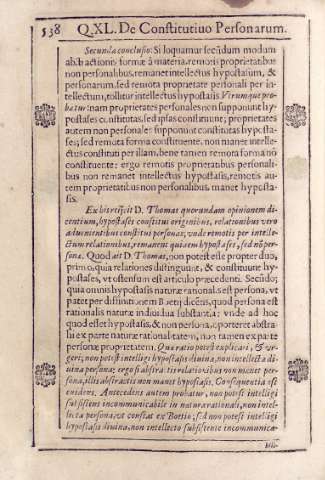 538 Q.XL. De Constitutiuo Personarum.
Secunda conclusio: Si loquamur secundum modum
abstractionis formæ à materia, remotis proprietatibus
non personalibus, remanet intellectus hypostasum, &
personarum, sed remota proprietate personali per in-
tellectum, tollitur intellectus hypostasis. Vtrumque pro-
batur: nam proprietates personales non supponunt hy-
postases constitutas, sed ipsas constituunt; proprietates
autem non personales supponunt constitutas hyposta-
ses; sed remota forma constituente, non manet intelle-
ctus constituti per illam, bene tamen remota forma nõ
constituente: ergo remotis proprietatibus personali-
bus non remanet intellectus hypostasis, remotis au-
tem proprietatibus non personalibus, manet hyposta-
sis.
Ex his reijcit D. Thomas quorundam opinionem di-
centium, hypostases constitui originibus, relationibus vero
aduenientibus constitui personas; vnde remotis per intelle-
ctum relationibus, remanent quidem hypostases, sed nõ perso-
næ. Quod ait D. Thomas, non potest esse propter duo,
primo, quia relationes distinguunt, & constituunt hy-
postases, vt ostensum est articulo præcedenti. Secũdo;
quia omnis hypostasis naturæ rationalis est persona, vt
patet per diffinitionem Boetij dicẽtis, quod persona est
rationalis naturæ indiuidua substantia: vnde ad hoc
quod esset hypostasis, & non persona, oporteret abstra-
hi ex parte naturæ rationalitatem, non tamen ex parte
personæ proprietatem. Quæ ratio potest explicari, & vr-
geri; non potest intelligi hypostasis diuina, non intellecta di-
uina persona; ergo si abstractis relationibus non manet per-
sona, illis abstractis non manet hypostasis. Consequentia est
euidens. Antecedens autem probatur, non potest intelligi
subsistens incommunicabile in natura rationali, non intel-
lecta persona, vt constat ex Boetio; sed non potest intelligi
hypostasis diuina, non intellecto subsistente incommunica-